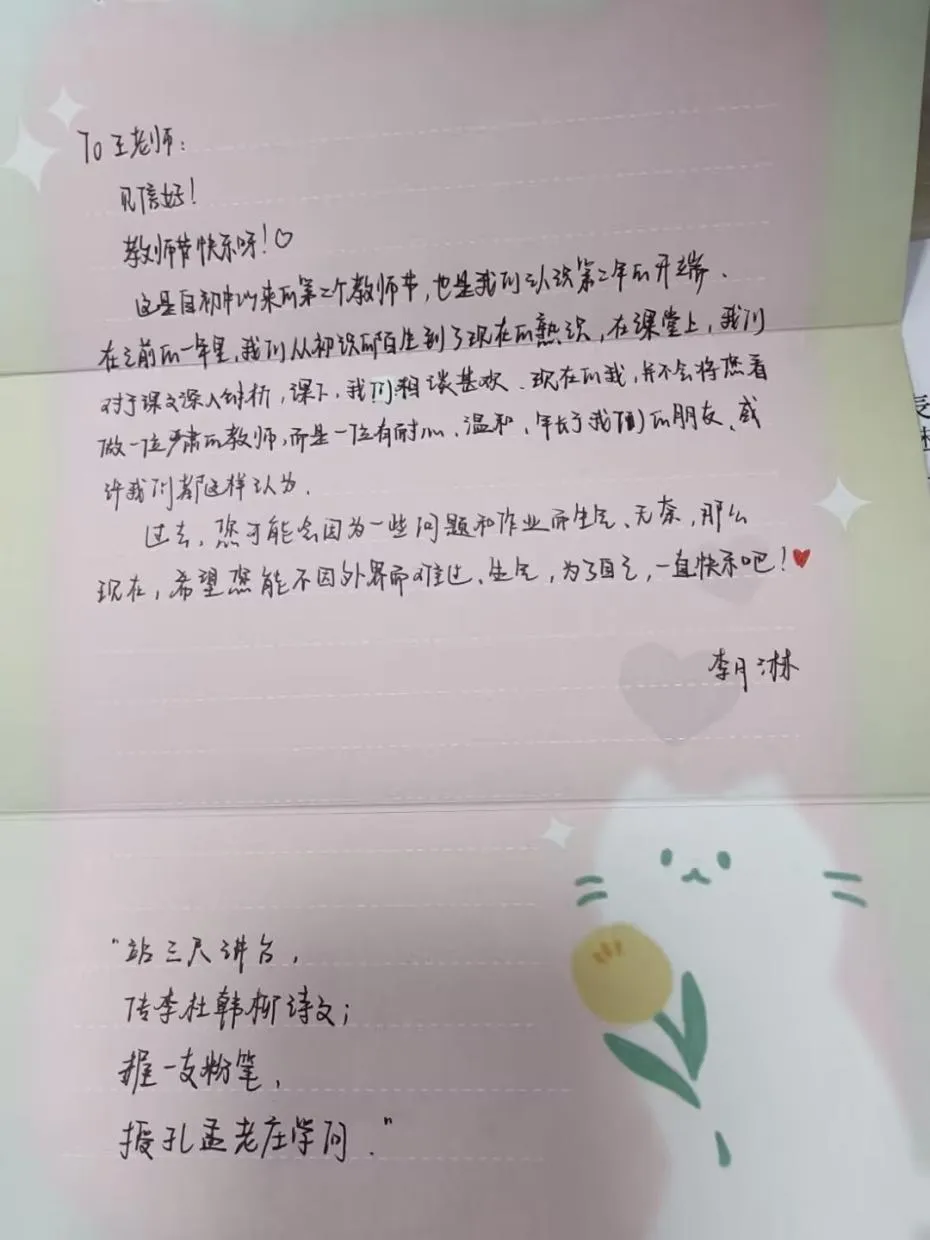 To 王老师：
见信好！
教师节快乐呀！♡
这是自初中以来的第二个教师节，也是我们认识第二年的开端．
在之前的一年里，我们从初识的陌生到了现在的熟识，在课堂上，我们
对于课文深入剖析，课下，我们相谈甚欢．现在的我，并不会将您看
做一位严肃的教师，而是一位有耐心、温和、年长于我们的朋友．或
许我们都这样认为．
过去，您可能会因为一些问题和作业而生气、无奈，那么
现在，希望您能不因外界而难过、生气，为了自己，一直快乐吧！♥
李月淋
“站三尺讲台，
传李杜韩柳诗文；
握一支粉笔，
授孔孟老庄学问．”